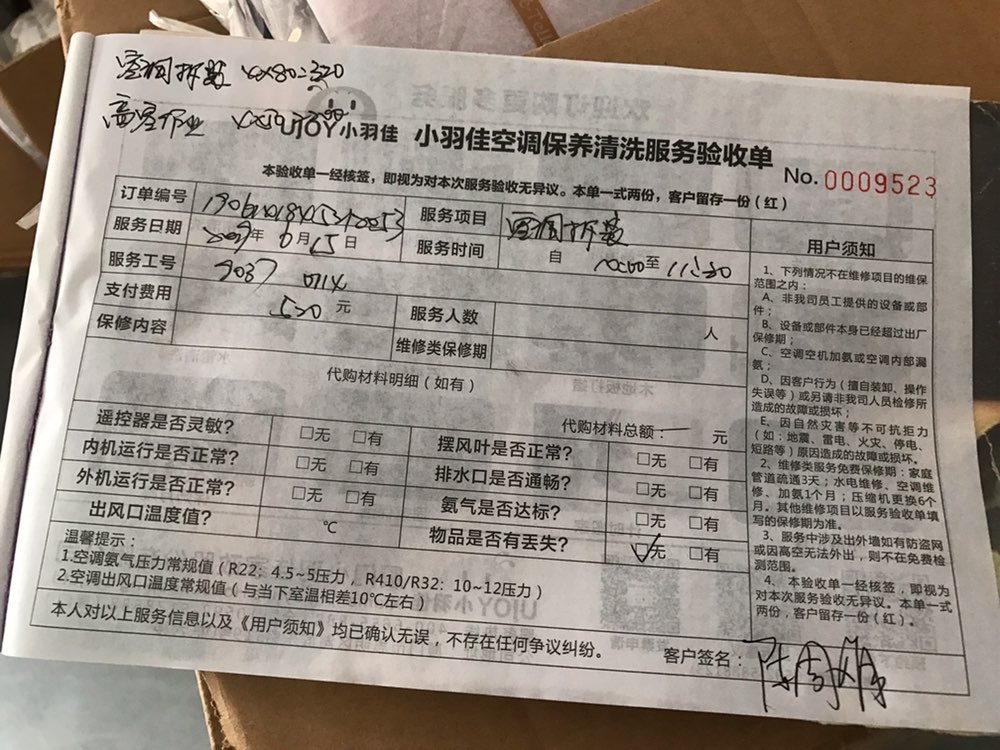 空调拆装 4×80=320
高空作业
UJOY小羽佳 小羽佳空调保养清洗服务验收单
No.0009523
本验收单一经核签，即视为对本次服务验收无异议。本单一式两份，客户留存一份（红）
订单编号 服务项目 空调拆装
服务日期 年 6月15日 服务时间 自 10:00至 11:30
服务工号 9037
支付费用 520 元 服务人数 人
保修内容 维修类保修期
代购材料明细（如有）
代购材料总额： 元
遥控器是否灵敏？ □无 □有 摆风叶是否正常？ □无 □有
内机运行是否正常？ □无 □有 排水口是否通畅？ □无 □有
外机运行是否正常？ □无 □有 氨气是否达标？ □无 □有
出风口温度值？ ℃ 物品是否有丢失？ ☑无 □有
温馨提示：
1.空调氨气压力常规值（R22；4.5~5压力，R410/R32；10~12压力）
2.空调出风口温度常规值（与当下室温相差10℃左右）
本人对以上服务信息以及《用户须知》均已确认无误，不存在任何争议纠纷。
客户签名：
用户须知
1、下列情况不在维修项目的维保
范围之内：
A、非我司员工提供的设备或部
件；
B、设备或部件本身已经超过出厂
保修期；
C、空调空机加氨或空调内部漏
氨；
D、因客户行为（擅自装卸、操作
失误等）或另请非我司人员检修所
造成的故障或损坏；
E、因自然灾害等不可抗拒力
（如：地震、雷电、火灾、停电、
短路等）原因造成的故障或损坏。
2、维修类服务免费保修期：家庭
管道疏通3天；水电维修、空调维
修、加氨1个月；压缩机更换6个
月。其他维修项目以服务验收单填
写的保修期为准。
3、服务中涉及出外墙如有防盗网
或因高空无法外出，则不在免费检
测范围。
4、本验收单一经核签，即视为
对本次服务验收无异议。本单一式
两份，客户留存一份（红）。